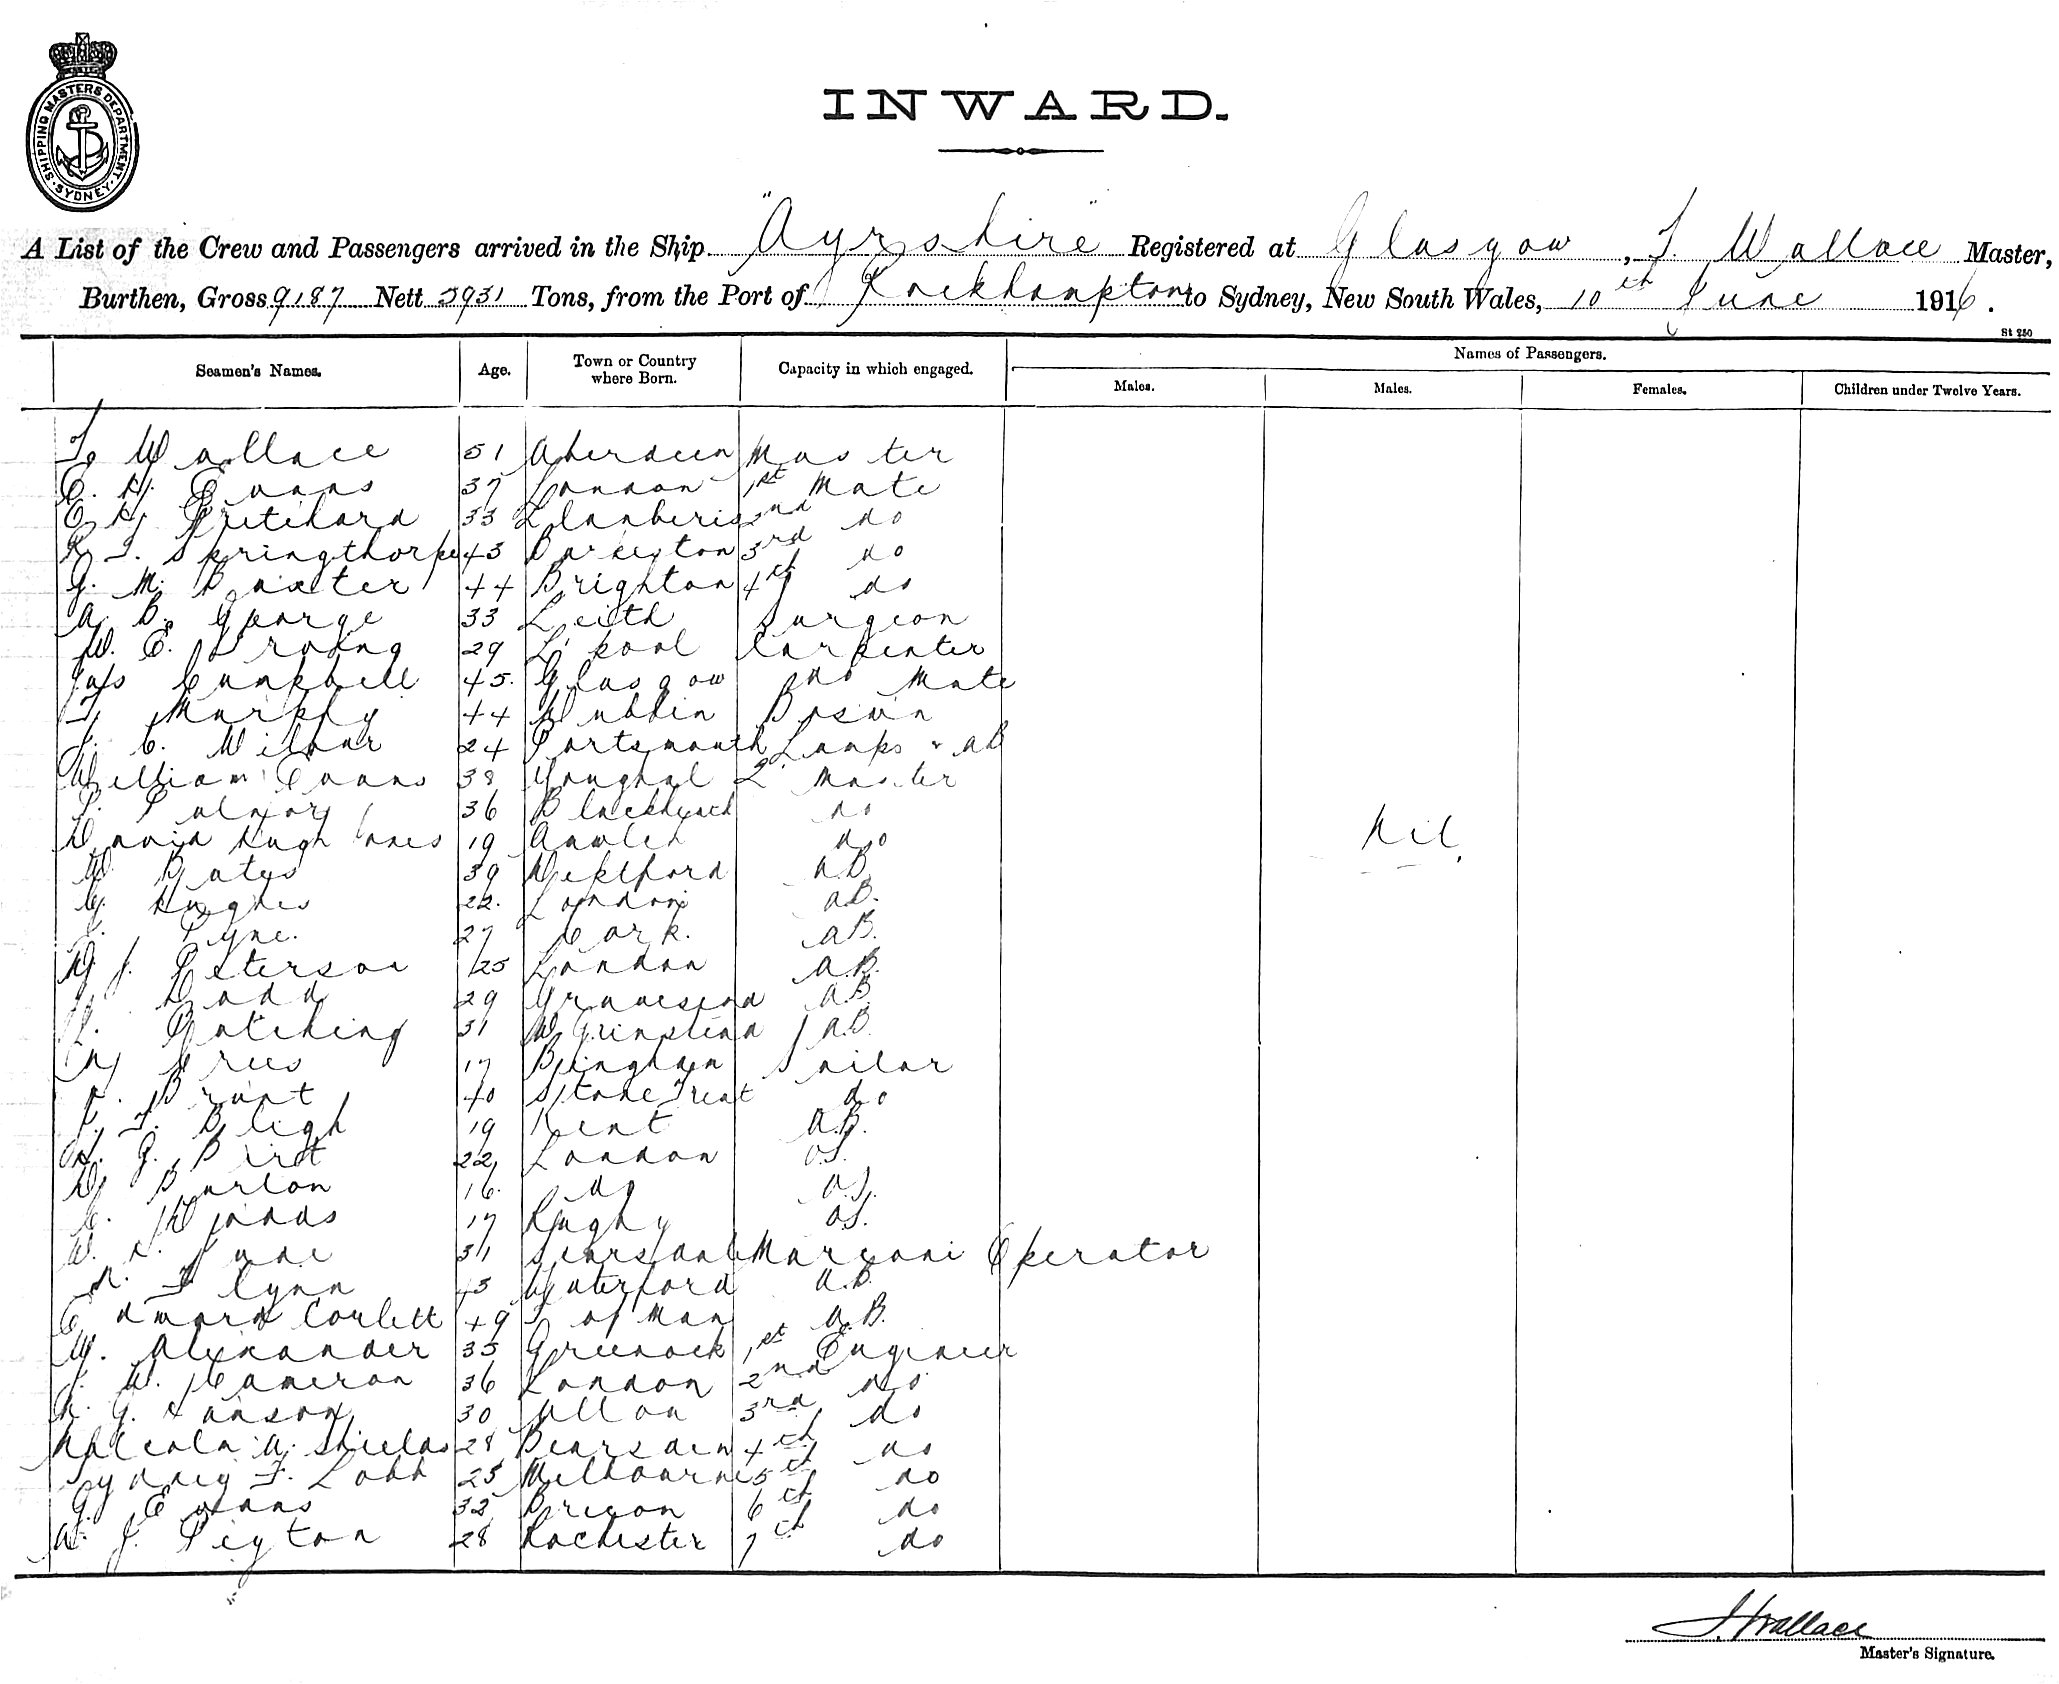 SHIPPING MASTERS DEPARTMENT · SYDNEY ·
INWARD.
A List of the Crew and Passengers arrived in the Ship "Ayrshire" Registered at Glasgow, T. Wallace Master,
Burthen, Gross 9187 Nett 5931 Tons, from the Port of Rockhampton to Sydney, New South Wales, 10th June 1916.
St 250
Seamen's Names. Age. Town or Country where Born. Capacity in which engaged. Names of Passengers.
Males. Males. Females. Children under Twelve Years.
T. Wallace 51 Aberdeen Master
E. H. Evans 37 London 1st Mate
E H Pritchard 33 Llanberis 2nd do
R. T. Springthorpe 43 3rd do
G. M. Baxter 44 Brighton 4th do
A. B. George 33 Leith Surgeon
W. E. 29 L'pool Carpenter
Jas Campbell 45. Glasgow do Mate
T. Murphy 44 Dublin Bosun
J. C. 24 Portsmouth Lamps & AB
William Evans 38 Youghal Q Master
P. 36 Blackheath do
David Hugh Jones 19 Amlch do
W. Bates 39 Deptford A.B.
G. Hughes 22. London A.B.
Pyne. 27 Cork. A.B.
J. Peterson 25 London A.B.
Dodd 29 Gravesend A.B.
Botching 31 W Grinstead A.B.
17 Bingham Sailor
Brunt 40 Stone Trent do
P. T. Bligh 19 Kent A.B.
H. G. Birt 22 London O.S.
Burton 16. do O.S.
Woods 17 Rugby O.S.
W. 31 Marconi Operator
Flynn 43 Waterford A.B.
Edward Corlett 49 I of Man A.B.
W. Alexander 35 Greenock 1st Engineer
J. W. Cameron 36 London 2nd do
G. Hanson 30 3rd do
Malcolm A. Shields 28 Bearsden 4th do
Sydney F. Lobb 25 Melbourne 5th do
G. Evans 32 Brecon 6th do
A. J. Peyton 28 Rochester 7th do
Nil.
T. Wallace
Master's Signature.